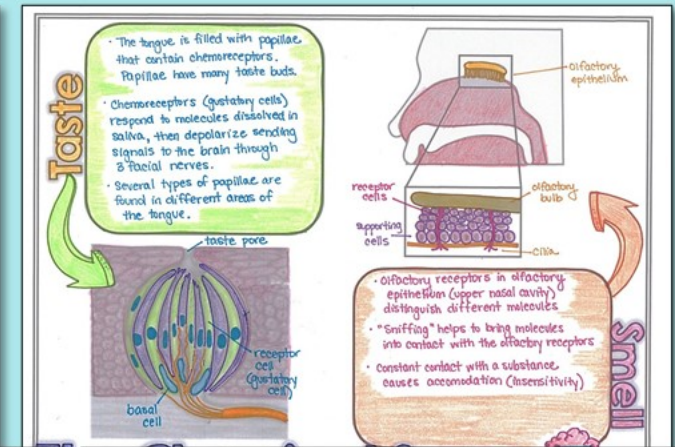 Taste
· The tongue is filled with papillae
that contain chemoreceptors.
Papillae have many taste buds.
· Chemoreceptors (gustatory cells)
respond to molecules dissolved in
saliva, then depolarize sending
signals to the brain through
3 facial nerves.
· Several types of papillae are
found in different areas of
the tongue.
taste pore
receptor
cell
(gustatory
cell)
basal
cell
olfactory
epithelium
receptor
cells
olfactory
bulb
supporting
cells
cilia
· Olfactory receptors in olfactory
epithelium (upper nasal cavity)
distinguish different molecules
· "Sniffing" helps to bring molecules
into contact with the olfactory receptors
· Constant contact with a substance
causes accomodation (insensitivity)
Smell